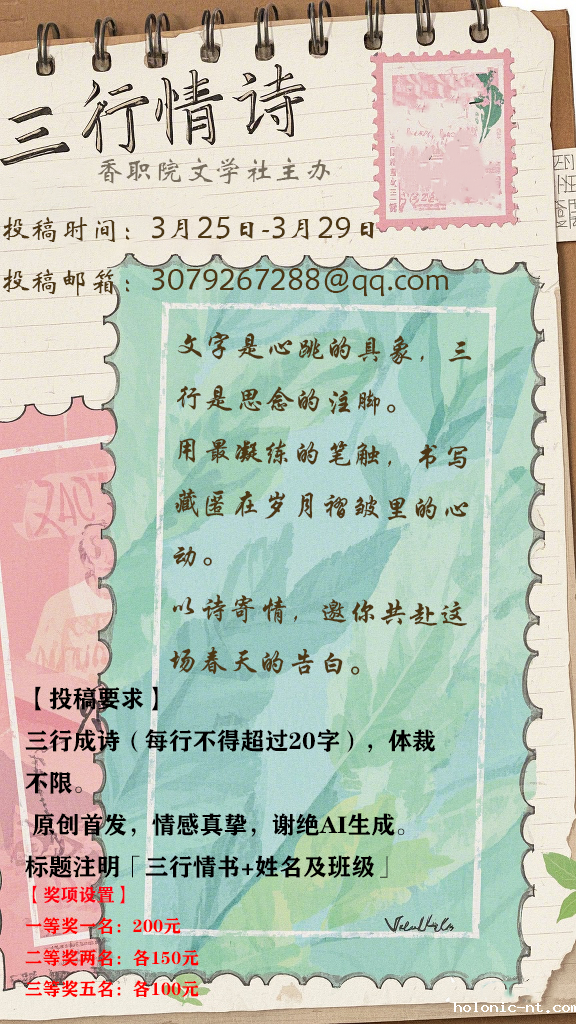 三行情诗
香职院文学社主办
投稿时间：3月25日-3月29日
投稿邮箱：3079267288@qq.com
文字是心跳的具象，三
行是思念的注脚。
用最凝练的笔触，书写
藏匿在岁月褶皱里的心
动。
以诗寄情，邀你共赴这
场春天的告白。
【投稿要求】
三行成诗（每行不得超过20字），体裁
不限。
原创首发，情感真挚，谢绝AI生成。
标题注明「三行情书+姓名及班级」
【奖项设置】
一等奖一名：200元
二等奖两名：各150元
三等奖五名：各100元
holonic-nt.com